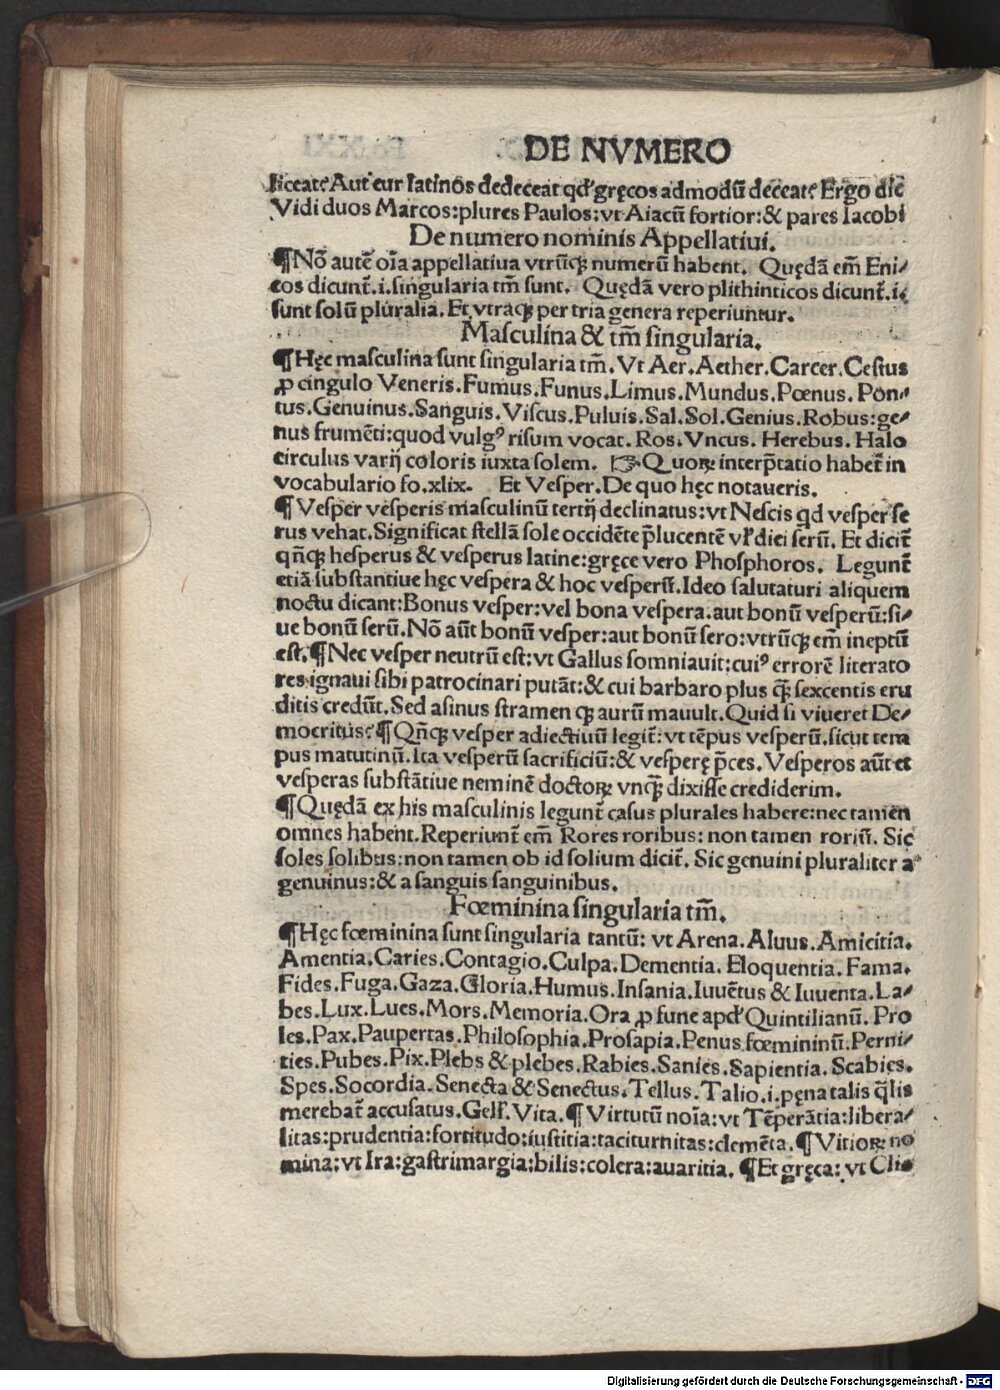 DE NVMERO
liceat? Aut cur latinos dedeceat qd' gręcos admodū deceat? Ergo dic
Vidi duos Marcos:plures Paulos:vt Aiacū fortior:& pares Iacobi
De numero nominis Appellatiui.
¶Nō autē oīa appellatiua vtrūq; numerū habent. Quędā em̄ Eni⸗
cos dicunt̄.i.singularia tm̄ sunt. Quędā vero plithinticos dicunt̄.i.
sunt solū pluralia. Et vtraq; per tria genera reperiuntur.
Masculina & tm̄ singularia.
¶Hęc masculina sunt singularia tm̄. Vt Aer. Aether. Carcer. Cestus
ꝓ cingulo Veneris. Fumus. Funus. Limus. Mundus. Pœnus. Pon⸗
tus. Genuinus. Sanguis. Viscus. Puluis. Sal. Sol. Genius. Robus:ge⸗
nus frumēti:quod vulgꝰ risum vocat. Ros. Vncus. Herebus. Halo
circulus varij coloris iuxta solem. ☞Quoꝝ interp̄tatio habet̄ in
vocabulario fo.xlix. Et Vesper. De quo hęc notaueris.
¶Vesper vesperis masculinū tertij declinatus:vt Nescis qd vesper se
rus vehat. Significat stellā sole occidēte p̄lucentē vl' diei serū. Et dicit̄
qn̄q; hesperus & vesperus latine:gręce vero Phosphoros. Legunt̄
etiā substantiue hęc vespera & hoc vesperū. Ideo salutaturi aliquem
noctu dicant:Bonus vesper:vel bona vespera.aut bonū vesperū:si⸗
ue bonū serū. Nō aūt bonū vesper:aut bonū sero:vtrūq; em̄ ineptū
est.¶Nec vesper neutrū est:vt Gallus somniauit:cuiꝰ errorē literato
res ignaui sibi patrocinari putāt:& cui barbaro plus q̄ꝫ sexcentis eru
ditis credūt. Sed asinus stramen q̄ꝫ aurū mauult. Quid si viueret De⸗
mocritus?¶Qn̄q; vesper adiectiuū legit̄:vt tēpus vesperū.sicut tem
pus matutinū. Ita vesperū sacrificiū:& vesperę p̄ces. Vesperos aūt et
vesperas substātiue neminē doctoꝝ vnq̄ꝫ dixisse crediderim.
¶Quędā ex his masculinis legunt̄ casus plurales habere:nec tamen
omnes habent. Reperiunt̄ em̄ Rores roribus: non tamen rorū. Sic
soles solibus:non tamen ob id solium dicit̄. Sic genuini pluraliter a
genuinus:& a sanguis sanguinibus.
Fœminina singularia tm̄.
¶Hęc fœminina sunt singularia tantū: vt Arena. Aluus. Amicitia.
Amentia. Caries. Contagio. Culpa. Dementia. Eloquentia. Fama.
Fides. Fuga. Gaza. Gloria. Humus. Insania. Iuuētus & Iuuenta. La⸗
bes. Lux. Lues. Mors. Memoria. Ora ꝓ fune apd' Quintilianū. Pro
les. Pax. Paupertas. Philosophia. Prosapia. Penus fœmininū. Perni⸗
ties. Pubes. Pix. Plebs & plebes. Rabies. Sanies. Sapientia. Scabies.
Spes. Socordia. Senecta & Senectus. Tellus. Talio.i.pęna talis q̄lis
merebat̄ accusatus. Gell'. Vita.¶Virtutū noīa:vt Tēperātia:libera⸗
litas:prudentia:fortitudo:iustitia:taciturnitas:clemēta.¶Vitioꝝ no
mina:vt Ira:gastrimargia:bilis:colera:auaritia.¶Et gręca:vt Clio
Digitalisierung gefördert durch die Deutsche Forschungsgemeinschaft - DFG